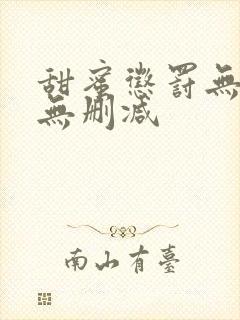 甜蜜懲罰無
無刪减
南山有臺